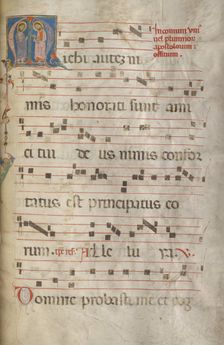 In comuni uniu
uel plurimor
apostolorum
officium.
Michi autez ni
mis honorati sunt ami
ci tui de us nimis confor
tatus est principatus eo
rum. Al le lu ya. V.
Domine probasti me et cog